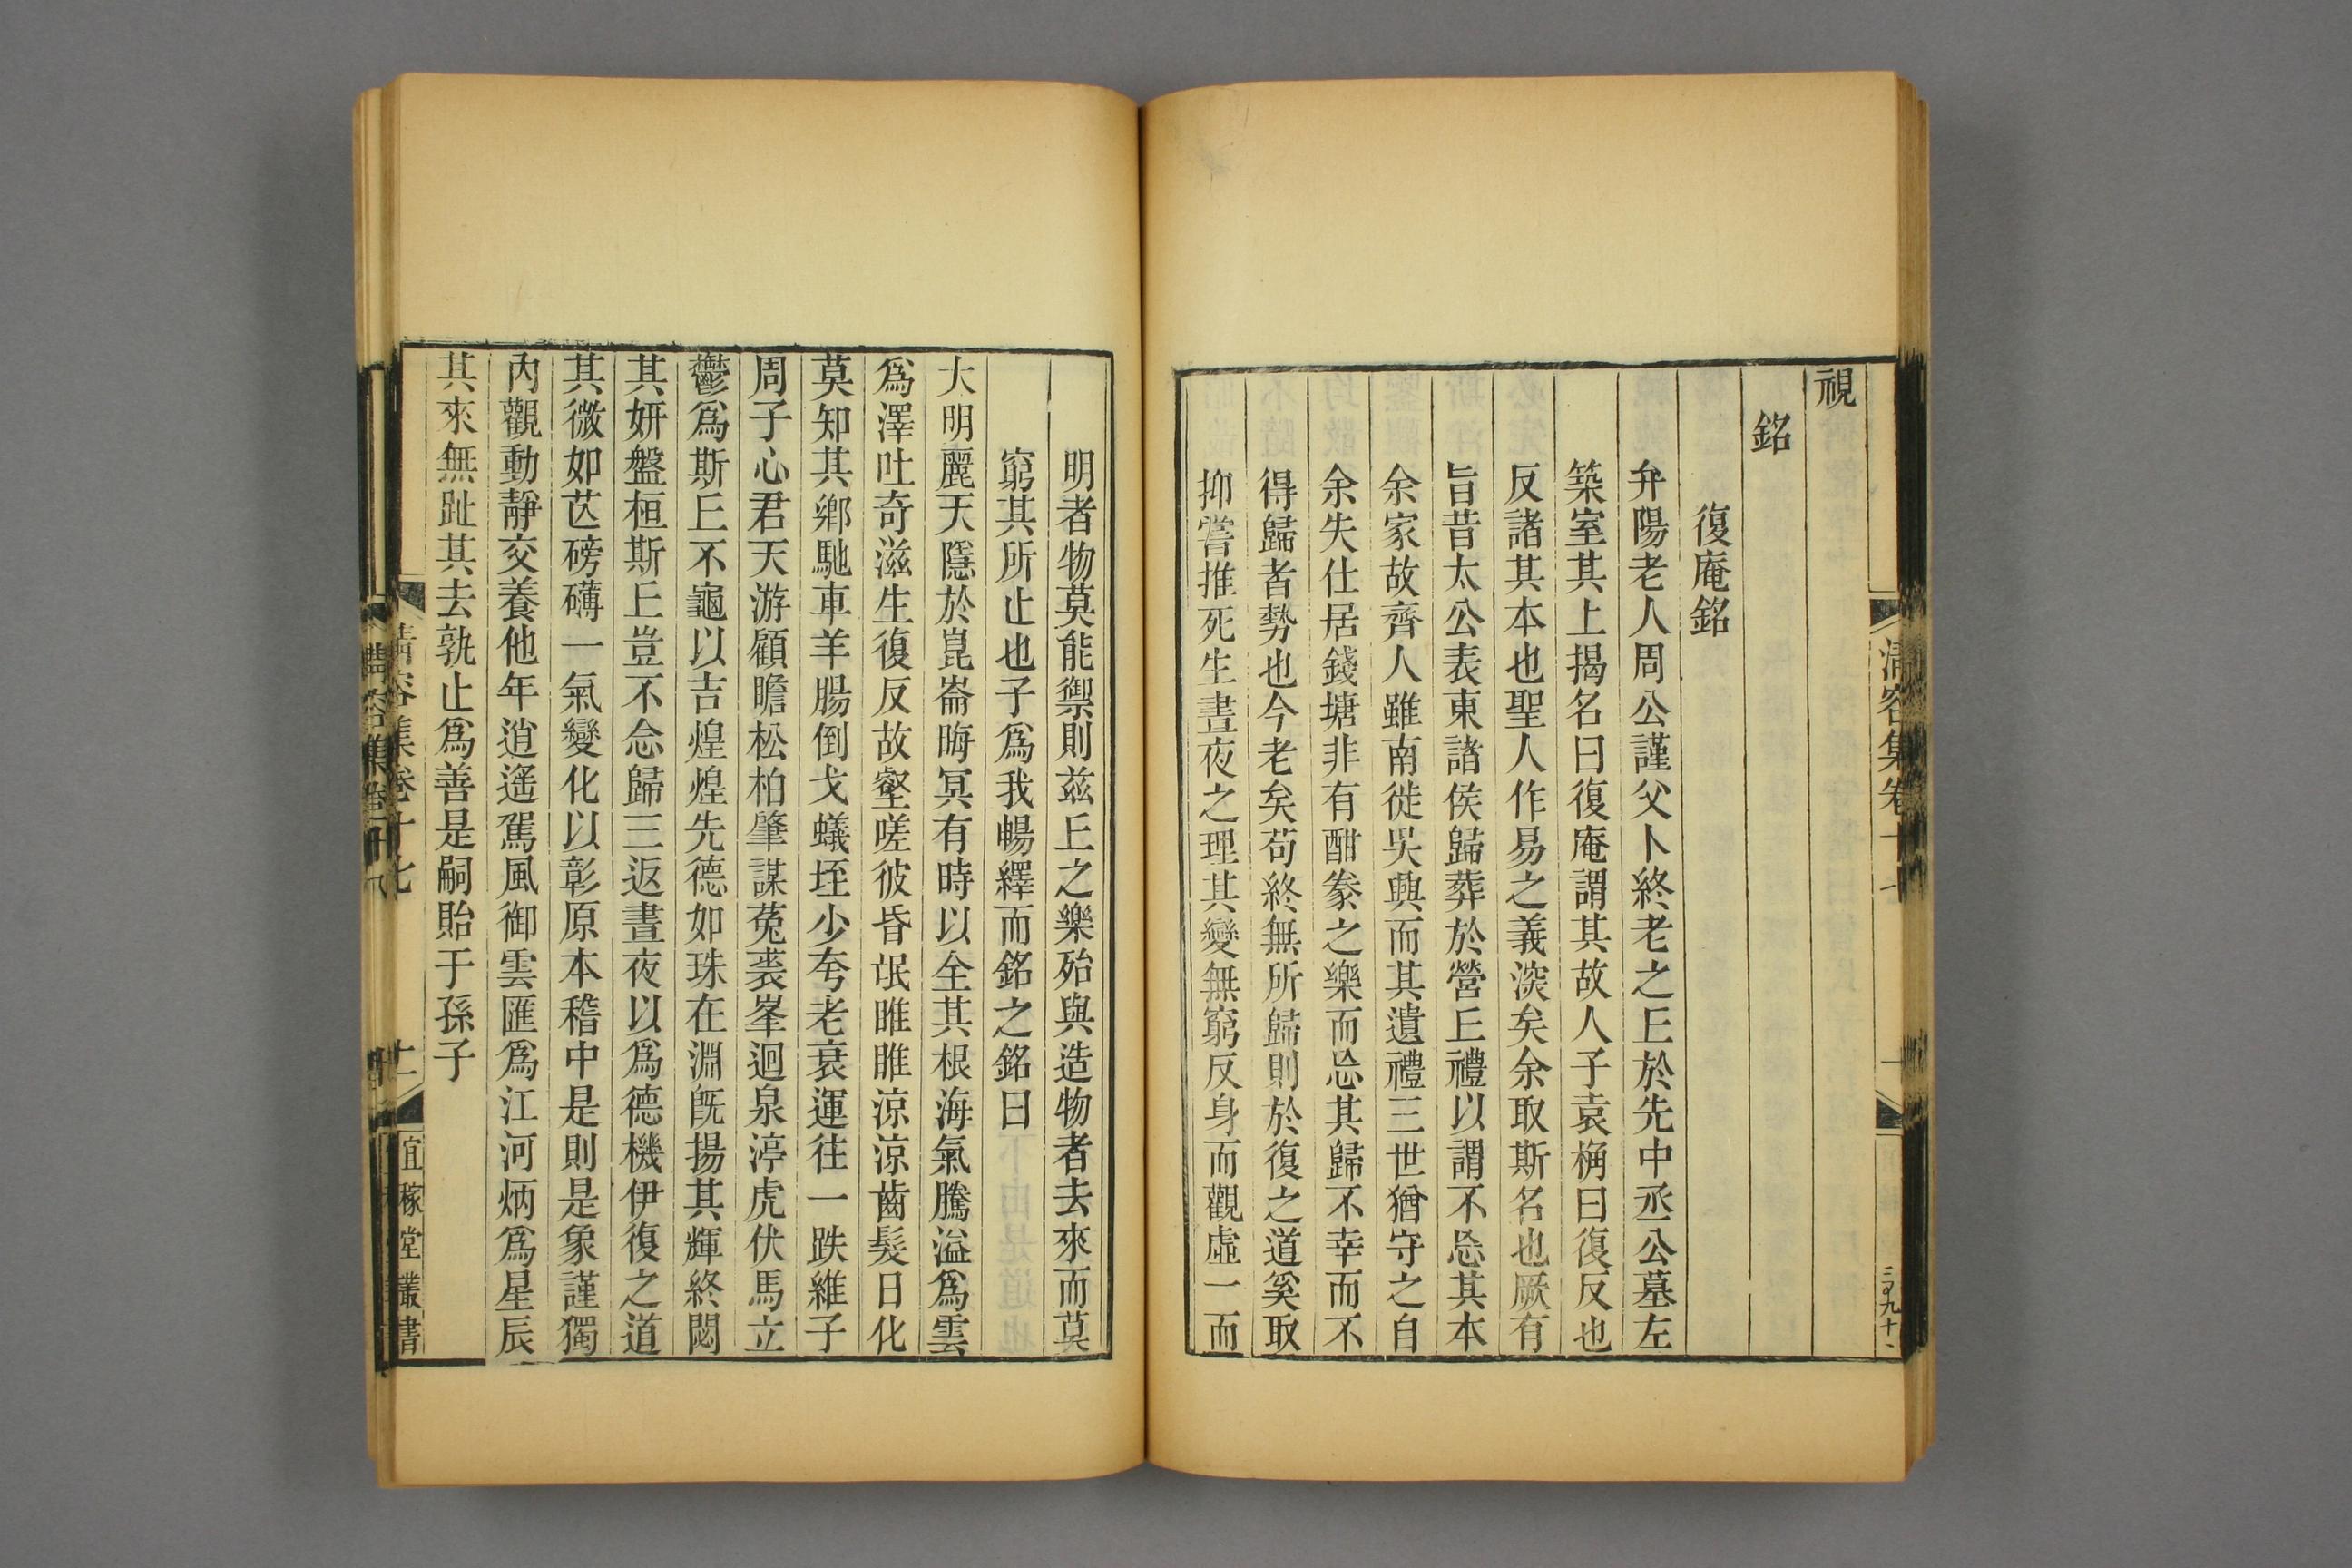 視
銘
復庵銘
弁陽老人周公謹父卜終老之𠀉於先中丞公墓左
築室其上揭名曰復庵謂其故人子袁桷曰復反也
反諸其本也聖人作易之義深矣余取斯名也厥有
旨昔太公表東諸侯歸葬於營𠀉禮以謂不忘其本
余家故齊人雖南徙吳興而其遺禮三世猶守之自
余失仕居錢塘非有酣豢之樂而忘其歸不幸而不
得歸者勢也今老矣苟終無所歸則於復之道奚取
抑嘗推死生晝夜之理其變無窮反身而觀虛一而
明者物莫能禦則茲𠀉之樂殆與造物者去來而莫
窮其所止也子爲我暢繹而銘之銘曰
大明麗天隱於崑崙晦冥有時以全其根海氣騰溢爲雲
爲澤吐奇滋生復反故壑嗟彼昏氓睢睢涼涼齒髮日化
莫知其鄉馳車羊腸倒戈蟻垤少夸老衰運往一跌維子
周子心君天游顧瞻松柏肇謀菟裘峯迴泉渟虎伏馬立
鬱爲斯𠀉不龜以吉煌煌先德如珠在淵旣揚其輝終閟
其妍盤桓斯𠀉豈不念歸三返晝夜以爲德機伊復之道
其微如芑磅礴一氣變化以彰原本稽中是則是象謹獨
內觀動靜交養他年逍遙駕風御雲匯爲江河炳爲星辰
其來無趾其去孰止爲善是嗣貽于孫子
清容集卷十七
十一
宜稼堂叢書